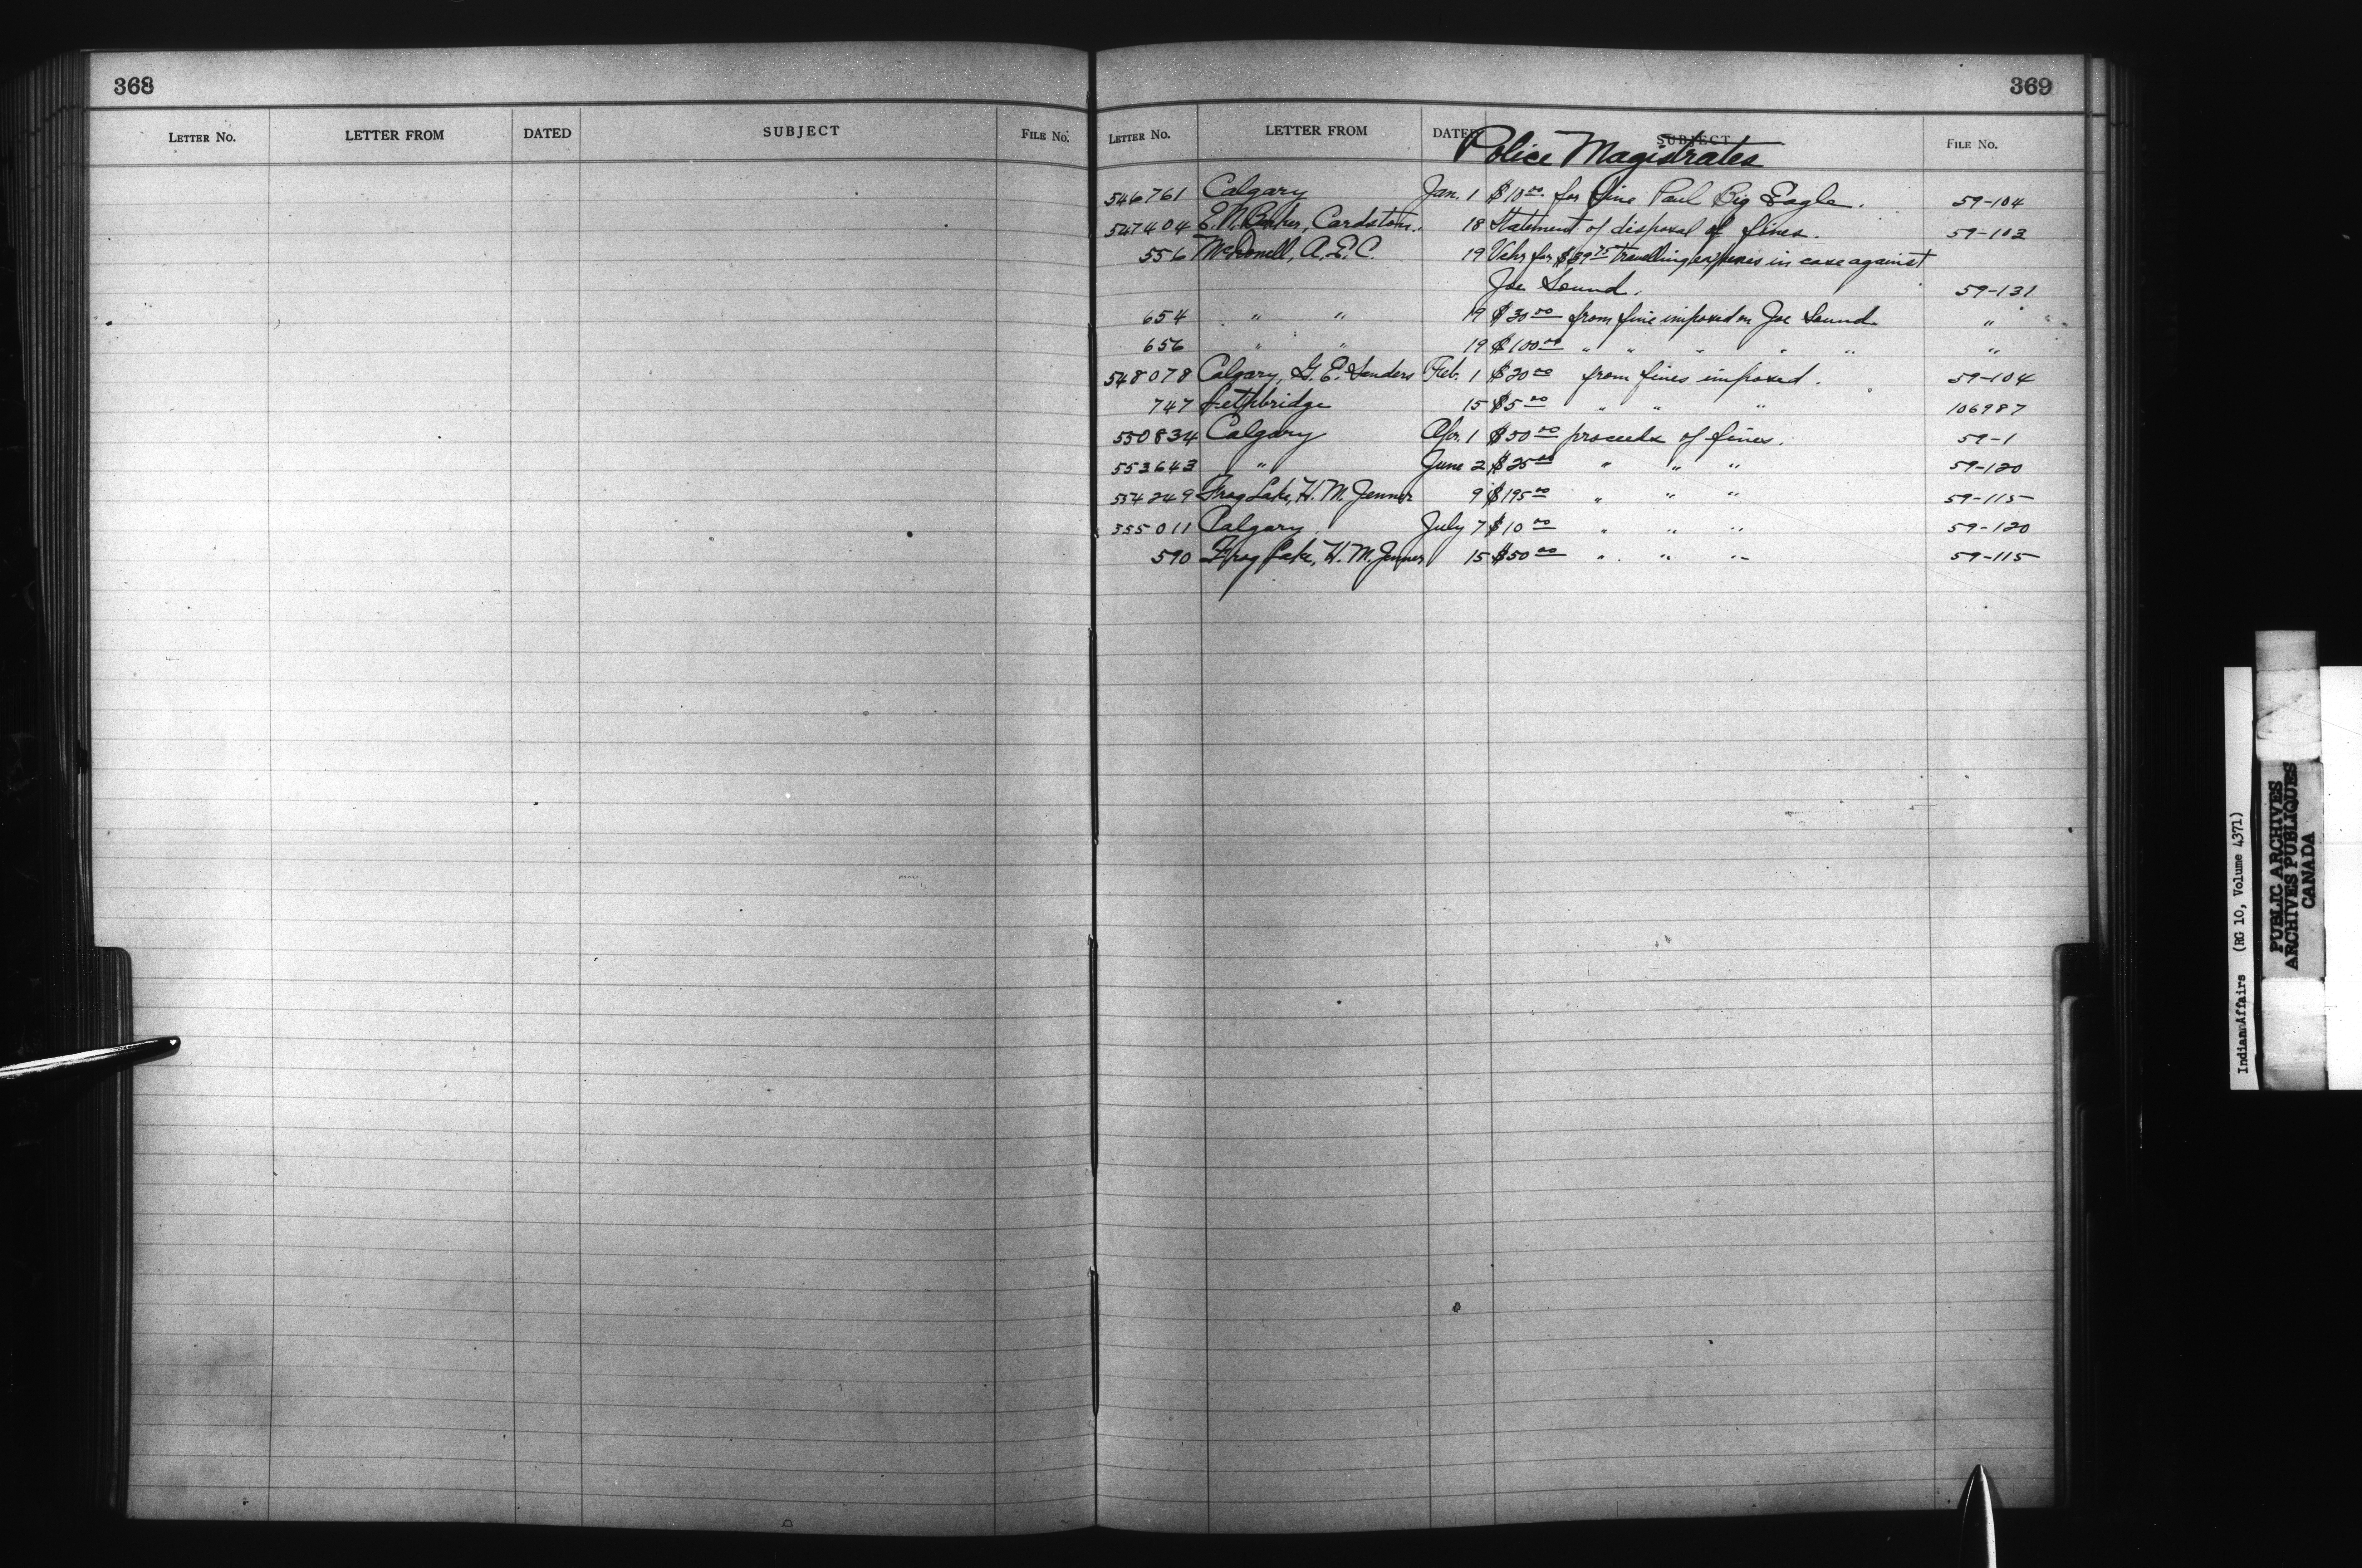 368
LETTER NO. LETTER FROM DATED SUBJECT FILE NO.
369
LETTER NO. LETTER FROM DATED SUBJECT FILE NO.
Police Magistrates
546761 Calgary Jan. 1 $10.00 for fine Paul Big Eagle. 59-104
547404 E.N. Barker, Cardston. 18 Statement of disposal of fines. 59-103
556 McDonell, A.E.C. 19 Vchr for $39.75 travelling expenses in case against
Joe Sound. 59-131
654 " " 19 $30.00 from fine imposed on Joe Sound "
656 " " 19 $100.00 " " " " " "
548078 Calgary, G.E. Sanders Feb. 1 $20.00 from fines imposed. 59-104
747 Lethbridge 15 $5.00 " " " 106987
550834 Calgary Apr. 1 $50.00 proceeds of fines. 59-1
553643 " June 2 $25.00 " " " 59-120
554249 Frog Lake, H.M. Jenner 9 $195.00 " " " 59-115
555011 Calgary July 7 $10.00 " " " 59-120
590 Frog Lake, H.M. Jenner 15 $50.00 " " " 59-115
Indian Affairs (RG 10, Volume 4371)
PUBLIC ARCHIVES
ARCHIVES PUBLIQUES
CANADA